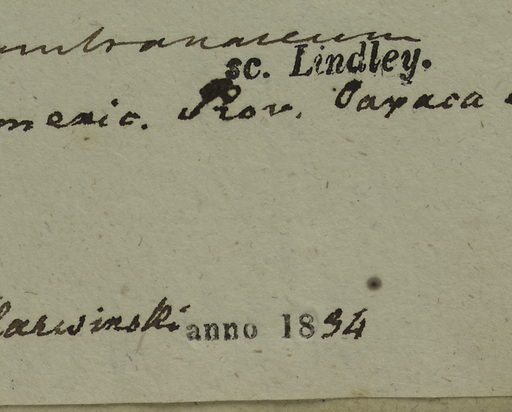 membranaceum
sc. Lindley.
mexic. Prov. Oaxaca
Karwinski anno 1834